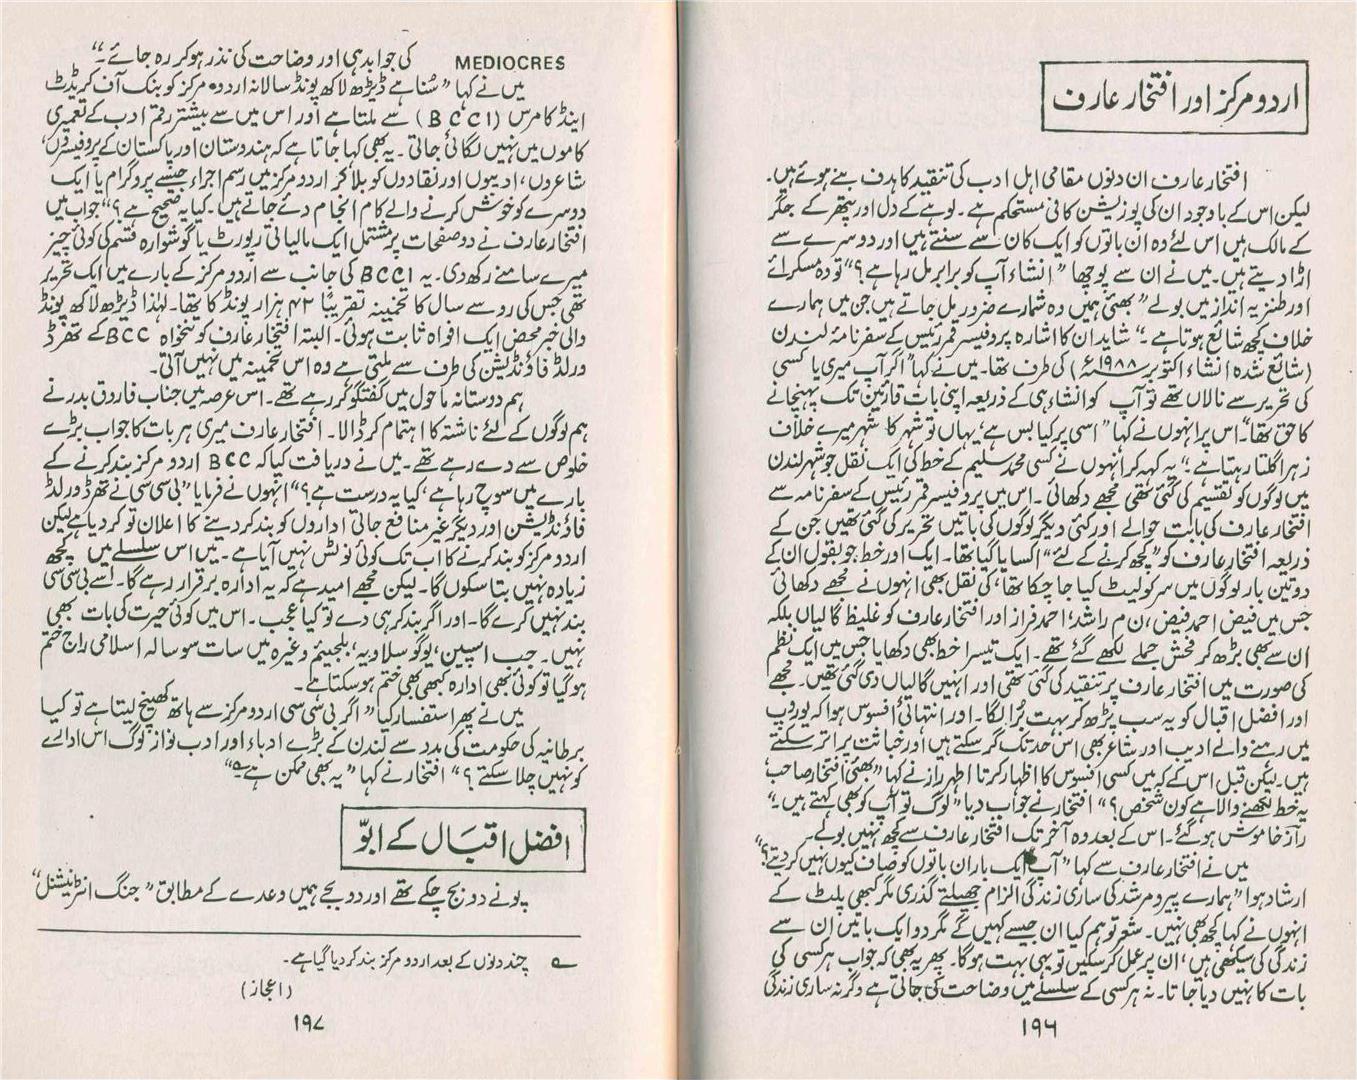 اردو مرکز اور افتخار عارف
افتخار عارف ان دنوں مقامی اہل ادب کی تنقید کا ہدف بنے ہوئے ہیں۔
لیکن اس کے باوجود ان کی پوزیشن کافی مستحکم ہے۔ لوہے کے دل اور پتھر کے جگر
کے مالک ہیں اس لئے وہ ان باتوں کو ایک کان سے سنتے ہیں اور دوسرے سے
اڑا دیتے ہیں۔ میں نے ان سے پوچھا "انشاء آپ کو برابر مل رہا ہے؟" تو وہ مسکرائے
اور طنزیہ انداز میں بولے "بھئی ہمیں وہ شمارے ضرور مل جاتے ہیں جن میں ہمارے
خلاف کچھ شائع ہوتا ہے۔" شاید ان کا اشارہ پروفیسر قمر رئیس کے سفرنامۂ لندن
(شائع شدہ انشاء اکتوبر ۱۹۸۸ء) کی طرف تھا۔ میں نے کہا "اگر آپ میری یا کسی
کی تحریر سے نالاں تھے تو آپ کو انشاء ہی کے ذریعہ اپنی بات قارئین تک پہنچانے
کا حق تھا"۔ اس پر انہوں نے کہا "اسی پر کیا بس ہے، یہاں تو شہر کا شہر میرے خلاف
زہر اگلتا رہتا ہے۔" یہ کہہ کر انہوں نے کسی محمد سلیم کے خط کی ایک نقل جو شہر لندن
میں لوگوں کو تقسیم کی گئی تھی مجھے دکھائی۔ اس میں پروفیسر قمر رئیس کے سفرنامہ سے
افتخار عارف کی بابت حوالے اور کئی دیگر لوگوں کی باتیں تحریر کی گئی تھیں جن کے
ذریعہ افتخار عارف کو "کچھ کرنے کے لئے" اکسایا گیا تھا۔ ایک اور خط جو بقول ان کے
دو تین بار لوگوں میں سرکولیٹ کیا جا چکا تھا، کی نقل بھی انہوں نے مجھے دکھائی
جس میں فیض احمد فیض، ن م راشد، احمد فراز اور افتخار عارف کو غلیظ گالیاں بلکہ
ان سے بھی بڑھ کر فحش جملے لکھے گئے تھے۔ ایک تیسرا خط بھی دکھایا جس میں ایک نظم
کی صورت میں افتخار عارف پر تنقید کی گئی تھی اور انہیں گالیاں دی گئی تھیں۔ مجھے
اور افضل اقبال کو یہ سب پڑھ کر بہت بُرا لگا۔ اور انتہائی افسوس ہوا کہ یوروپ
میں رہنے والے ادیب اور شاعر بھی اس حد تک گر سکتے ہیں اور خباثت پر اتر سکتے
ہیں۔ لیکن قبل اس کے کہ میں کسی افسوس کا اظہار کرتا اظہر راز نے کہا "بھئی افتخار صاحب،
یہ خط لکھنے والا ہے کون شخص؟" افتخار نے جواب دیا "لوگ تو آپ کو بھی کہتے ہیں۔"
راز خاموش ہو گئے۔ اس کے بعد وہ آخر تک افتخار عارف سے کچھ نہیں بولے۔
میں نے افتخار عارف سے کہا "آپ ایک بار ان باتوں کو صاف کیوں نہیں کر دیتے؟"
ارشاد ہوا "ہمارے پیر و مرشد کی ساری زندگی الزام جھیلتے گذری مگر کبھی پلٹ کے
انہوں نے کہا کچھ بھی نہیں۔ شعر تو ہم کیا ان جیسے کہیں گے مگر دو ایک باتیں ان سے
زندگی کی سیکھی ہیں، ان پر عمل کر سکیں تو یہی بہت ہوگا۔ پھر یہ بھی کہ جواب ہر کسی کی
بات کا نہیں دیا جاتا۔ نہ ہر کسی کے سلسلے میں وضاحت کی جاتی ہے وگرنہ ساری زندگی
۱۹۶
MEDIOCRES کی جوابدہی اور وضاحت کی نذر ہو کر رہ جائے۔"
میں نے کہا "سُنا ہے ڈیڑھ لاکھ پونڈ سالانہ اردو مرکز کو بنک آف کریڈٹ
اینڈ کامرس (BCCI) سے ملتا ہے اور اس میں سے بیشتر رقم ادب کے تعمیری
کاموں میں نہیں لگائی جاتی۔ یہ بھی کہا جاتا ہے کہ ہندوستان اور پاکستان کے پروفیسروں،
شاعروں، ادیبوں اور نقادوں کو بلا کر اردو مرکز میں رسم اجراء جیسے پروگرام یا ایک
دوسرے کو خوش کرنے والے کام انجام دئے جاتے ہیں۔ کیا یہ صحیح ہے؟" جواب میں
افتخار عارف نے دو صفحات پر مشتمل ایک مالیاتی رپورٹ یا گوشوارہ قسم کی کوئی چیز
میرے سامنے رکھ دی۔ یہ BCCI کی جانب سے اردو مرکز کے بارے میں ایک تحریر
تھی جس کی رو سے سال کا تخمینہ تقریبًا ۴۳ ہزار پونڈ کا تھا۔ لہٰذا ڈیڑھ لاکھ پونڈ
والی خبر محض ایک افواہ ثابت ہوئی۔ البتہ افتخار عارف کو تنخواہ BCC کے تھرڈ
ورلڈ فاؤنڈیشن کی طرف سے ملتی ہے وہ اس تخمینہ میں نہیں آتی۔
ہم دوستانہ ماحول میں گفتگو کر رہے تھے۔ اس عرصہ میں جناب فاروق بدر نے
ہم لوگوں کے لئے ناشتہ کا اہتمام کر ڈالا۔ افتخار عارف میری ہر بات کا جواب بڑے
خلوص سے دے رہے تھے۔ میں نے دریافت کیا کہ BCC اردو مرکز بند کرنے کے
بارے میں سوچ رہا ہے، کیا یہ درست ہے؟" انہوں نے فرمایا "بی سی سی نے تھرڈ ورلڈ
فاؤنڈیشن اور دیگر غیر منافع جاتی اداروں کو بند کر دینے کا اعلان تو کر دیا ہے لیکن
اردو مرکز کو بند کرنے کا اب تک کوئی نوٹس نہیں آیا ہے۔ میں اس سلسلے میں کچھ
زیادہ نہیں بتا سکوں گا۔ لیکن مجھے امید ہے کہ یہ ادارہ برقرار رہے گا۔ اسے بی سی سی
بند نہیں کرے گا۔ اور اگر بند کر ہی دے تو کیا عجب۔ اس میں کوئی حیرت کی بات بھی
نہیں۔ جب اسپین، یوگوسلاویہ، بلجیئم وغیرہ میں سات سو سالہ اسلامی راج ختم
ہو گیا تو کوئی بھی ادارہ کبھی بھی ختم ہو سکتا ہے۔
میں نے پھر استفسار کیا "اگر بی سی سی اردو مرکز سے ہاتھ کھینچ لیتا ہے تو کیا
برطانیہ کی حکومت کی مدد سے لندن کے بڑے ادباء اور ادب نواز لوگ اس ادارے
کو نہیں چلا سکتے؟" افتخار نے کہا "یہ بھی ممکن ہے"
افضل اقبال کے ابوّ
پونے دو بج چکے تھے اور دو بجے ہمیں وعدے کے مطابق "جنگ انٹرنیشنل"
چند دنوں کے بعد اردو مرکز بند کر دیا گیا ہے۔
(اعجاز)
۱۹۷